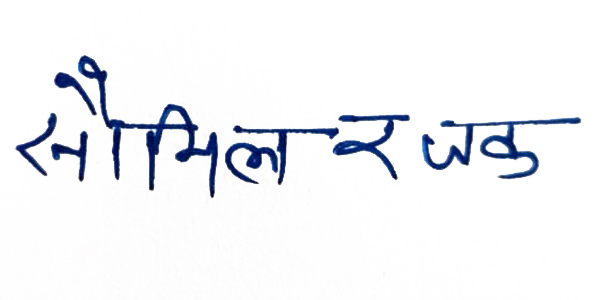 सौमिल रजक